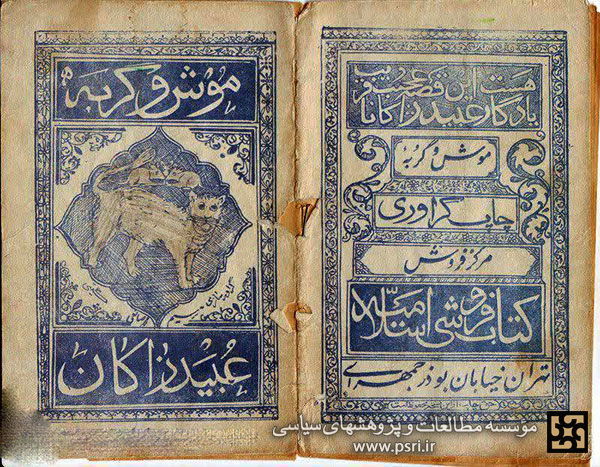 هست این قصه عجیب و غریب
یادگار عبید زاکانا
موش و گربه
چاپ گراوری
مرکز فروش
کتابفروشی اسلامیه
تهران خیابان بوذرجمهری
موش و گربه
گراورسازی
عبید زاکان
موسسه مطالعات و پژوهشهای سیاسی
www.psri.ir